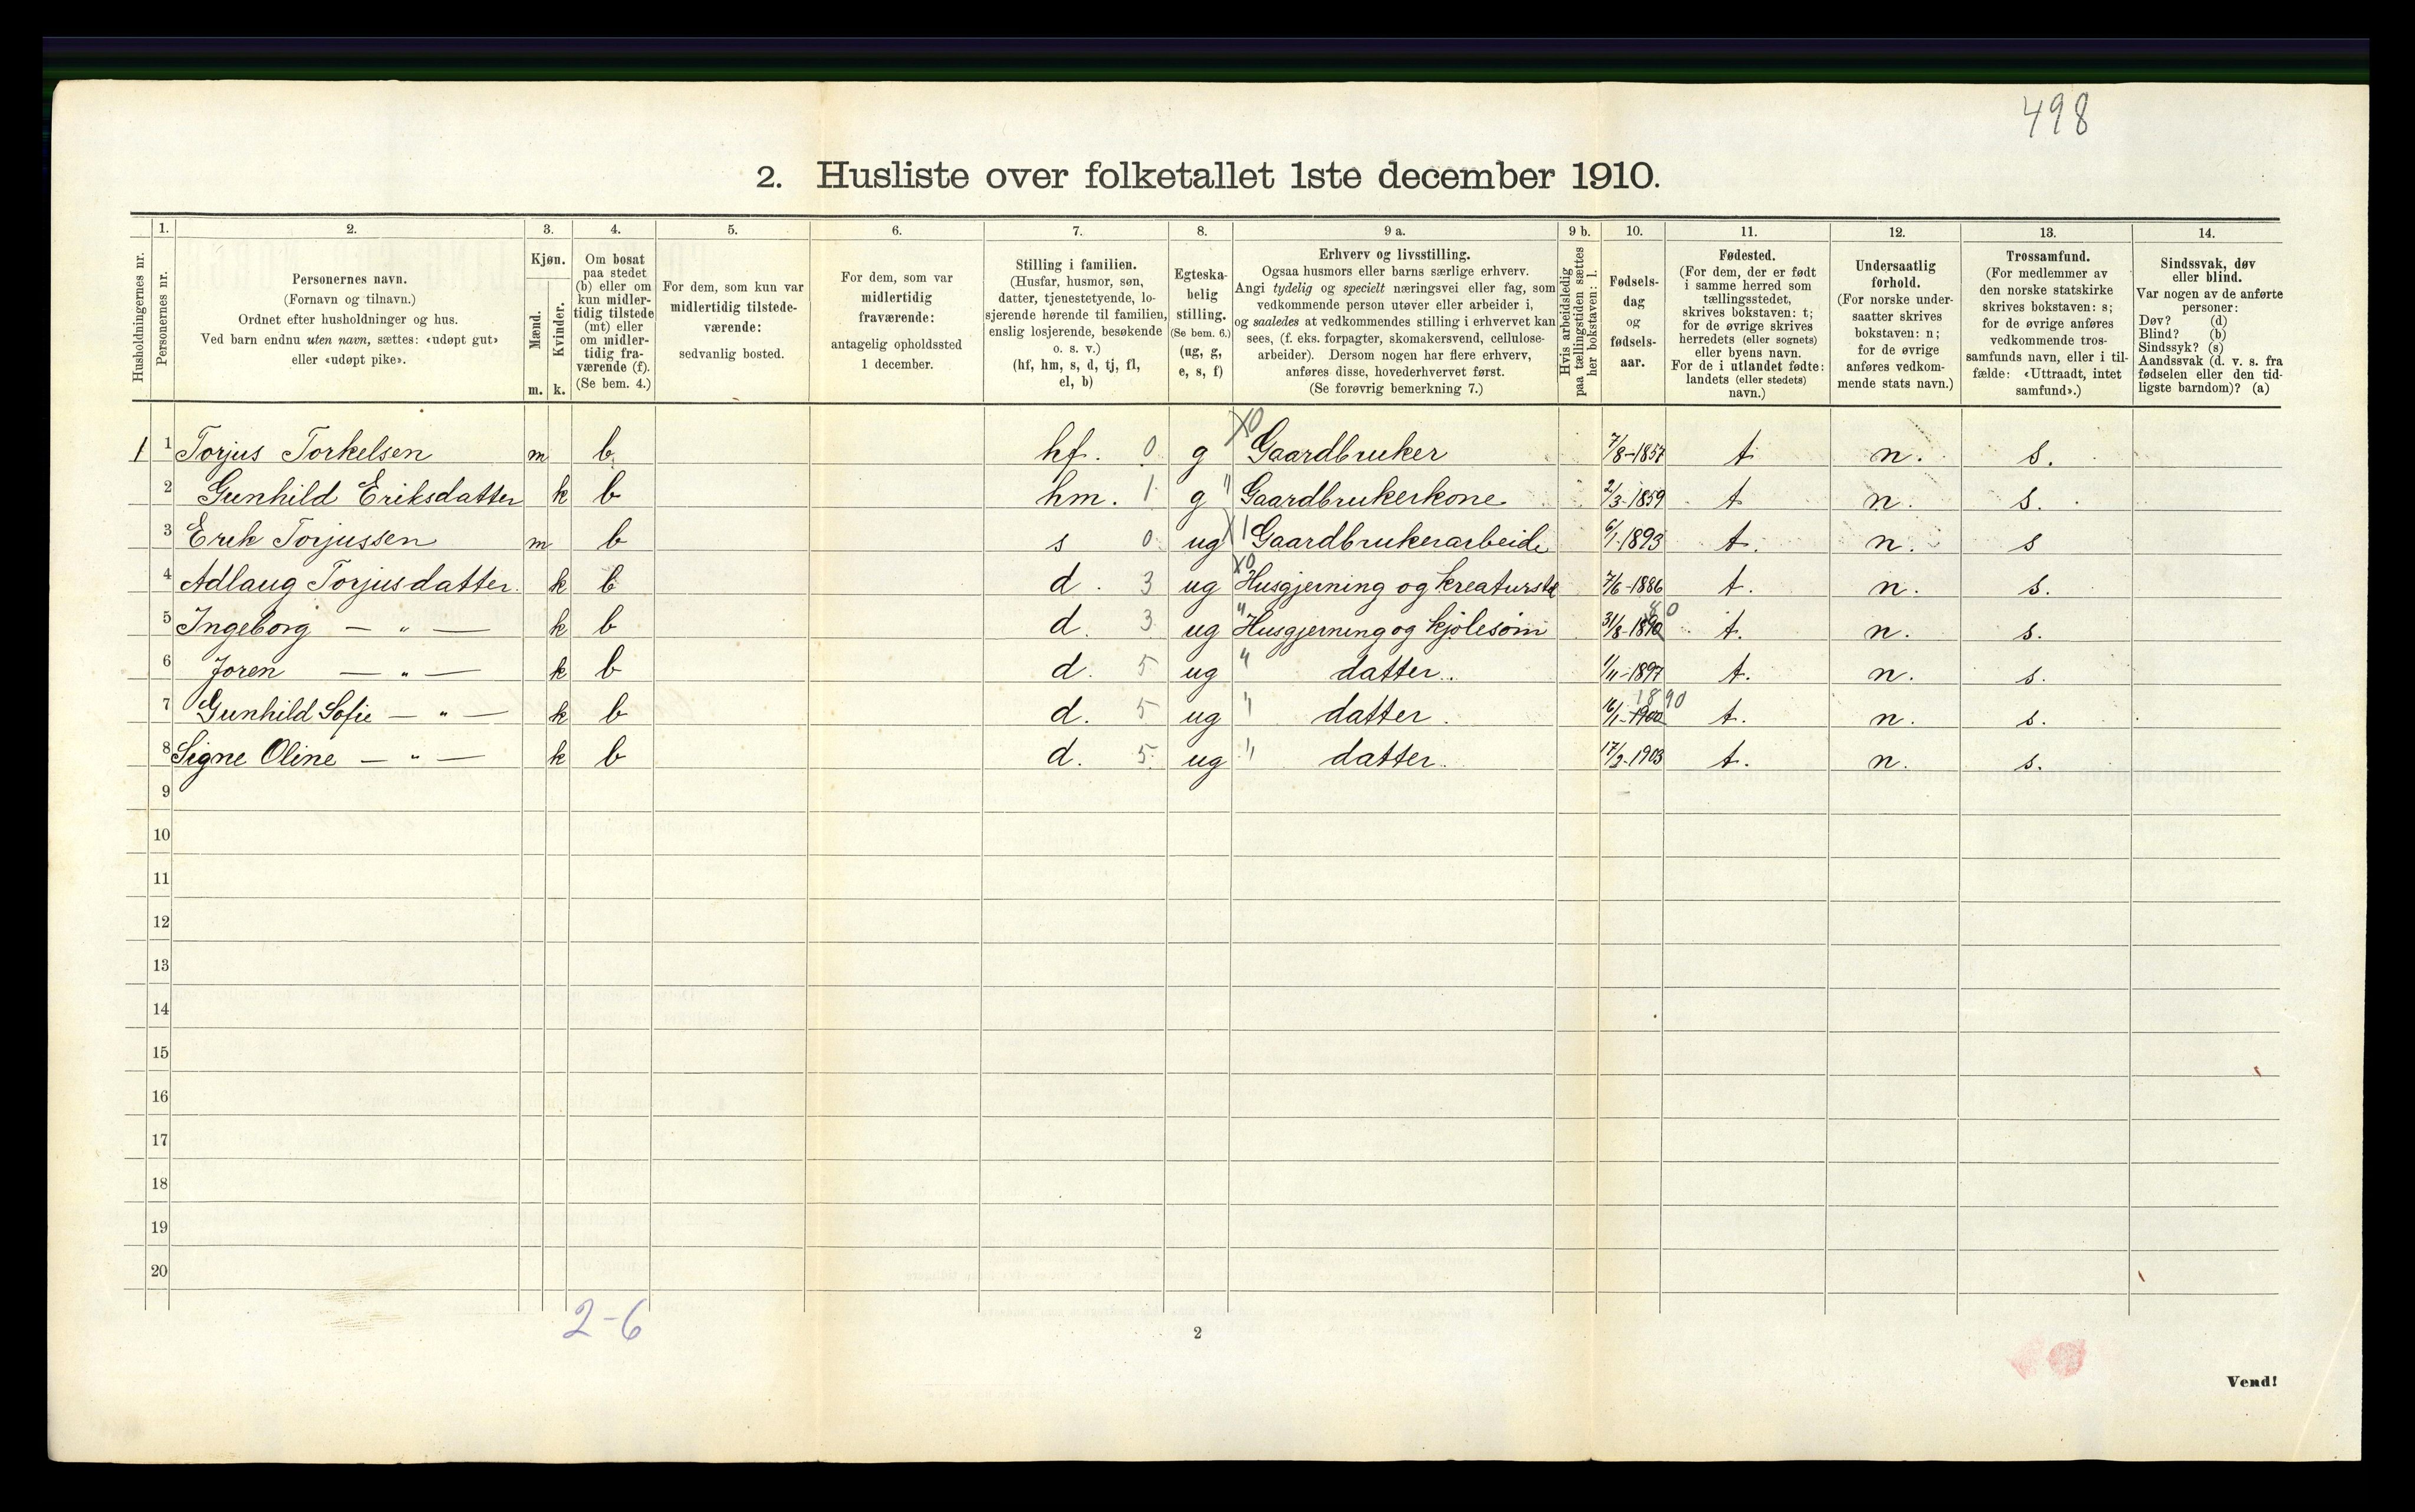 498
2. Husliste over folketallet 1ste december 1910.
Husholdningernes nr.
1. Personernes nr.
2. Personernes navn.
(Fornavn og tilnavn.)
Ordnet efter husholdninger og hus.
Ved barn endnu uten navn, sættes: «udøpt gut»
eller «udøpt pike».
3. Kjøn.
Mænd. m.
Kvinder. k.
4. Om bosat
paa stedet
(b) eller om
kun midler-
tidig tilstede
(mt) eller
om midler-
tidig fra-
værende (f).
(Se bem. 4.)
5. For dem, som kun var
midlertidig tilstede-
værende:
sedvanlig bosted.
6. For dem, som var
midlertidig
fraværende:
antagelig opholdssted
1 december.
7. Stilling i familien.
(Husfar, husmor, søn,
datter, tjenestetyende, lo-
sjerende hørende til familien,
enslig losjerende, besøkende
o. s. v.)
(hf, hm, s, d, tj, fl,
el, b)
8. Egteska-
belig
stilling.
(Se bem. 6.)
(ug, g,
e, s, f)
9 a. Erhverv og livsstilling.
Ogsaa husmors eller barns særlige erhverv.
Angi tydelig og specielt næringsvei eller fag, som
vedkommende person utøver eller arbeider i,
og saaledes at vedkommendes stilling i erhvervet kan
sees, (f. eks. forpagter, skomakersvend, cellulose-
arbeider). Dersom nogen har flere erhverv,
anføres disse, hovederhvervet først.
(Se forøvrig bemerkning 7.)
9 b. Hvis arbeidsledig
paa tællingstiden sættes
her bokstaven: l.
10. Fødsels-
dag
og
fødsels-
aar.
11. Fødested.
(For dem, der er født
i samme herred som
tællingsstedet,
skrives bokstaven: t;
for de øvrige skrives
herredets (eller sognets)
eller byens navn.
For de i utlandet fødte:
landets (eller stedets)
navn.)
12. Undersaatlig
forhold.
(For norske under-
saatter skrives
bokstaven: n;
for de øvrige
anføres vedkom-
mende stats navn.)
13. Trossamfund.
(For medlemmer av
den norske statskirke
skrives bokstaven: s;
for de øvrige anføres
vedkommende tros-
samfunds navn, eller i til-
fælde: «Uttraadt, intet
samfund».)
14. Sindssvak, døv
eller blind.
Var nogen av de anførte
personer:
Døv? (d)
Blind? (b)
Sindssyk? (s)
Aandssvak (d. v. s. fra
fødselen eller den tid-
ligste barndom)? (a)
1 1 Torjus Torkelsen m b hf. 0 g X0 Gaardbruker 7/8-1857 t n. s.
2 Gunhild Eriksdatter k b hm. 1 g " Gaardbrukerkone 2/3-1859 t n. s.
3 Erik Torjussen m b s 0 ug X1 Gaardbrukerarbeide 6/1-1893 t. n. s
4 Adlaug Torjusdatter. k b d. 3 ug X0 Husgjerning og kreaturstel 7/6-1886 t. n. s.
5 Ingeborg — " — k b d. 3 ug " Husgjerning og kjolesøm 31/8-1890 80 t. n. s.
6 Joren — " — k b d. 5 ug " datter. 1/11-1897 t. n. s.
7 Gunhild Sofie — " — k b d. 5 ug " datter. 16/1-1900 1890 t. n. s.
8 Signe Oline — " — k b d. 5 ug " datter. 17/3-1903 t. n. s.
9
10
11
12
13
14
15
16
17
18
19
20
2-6
2
Vend!